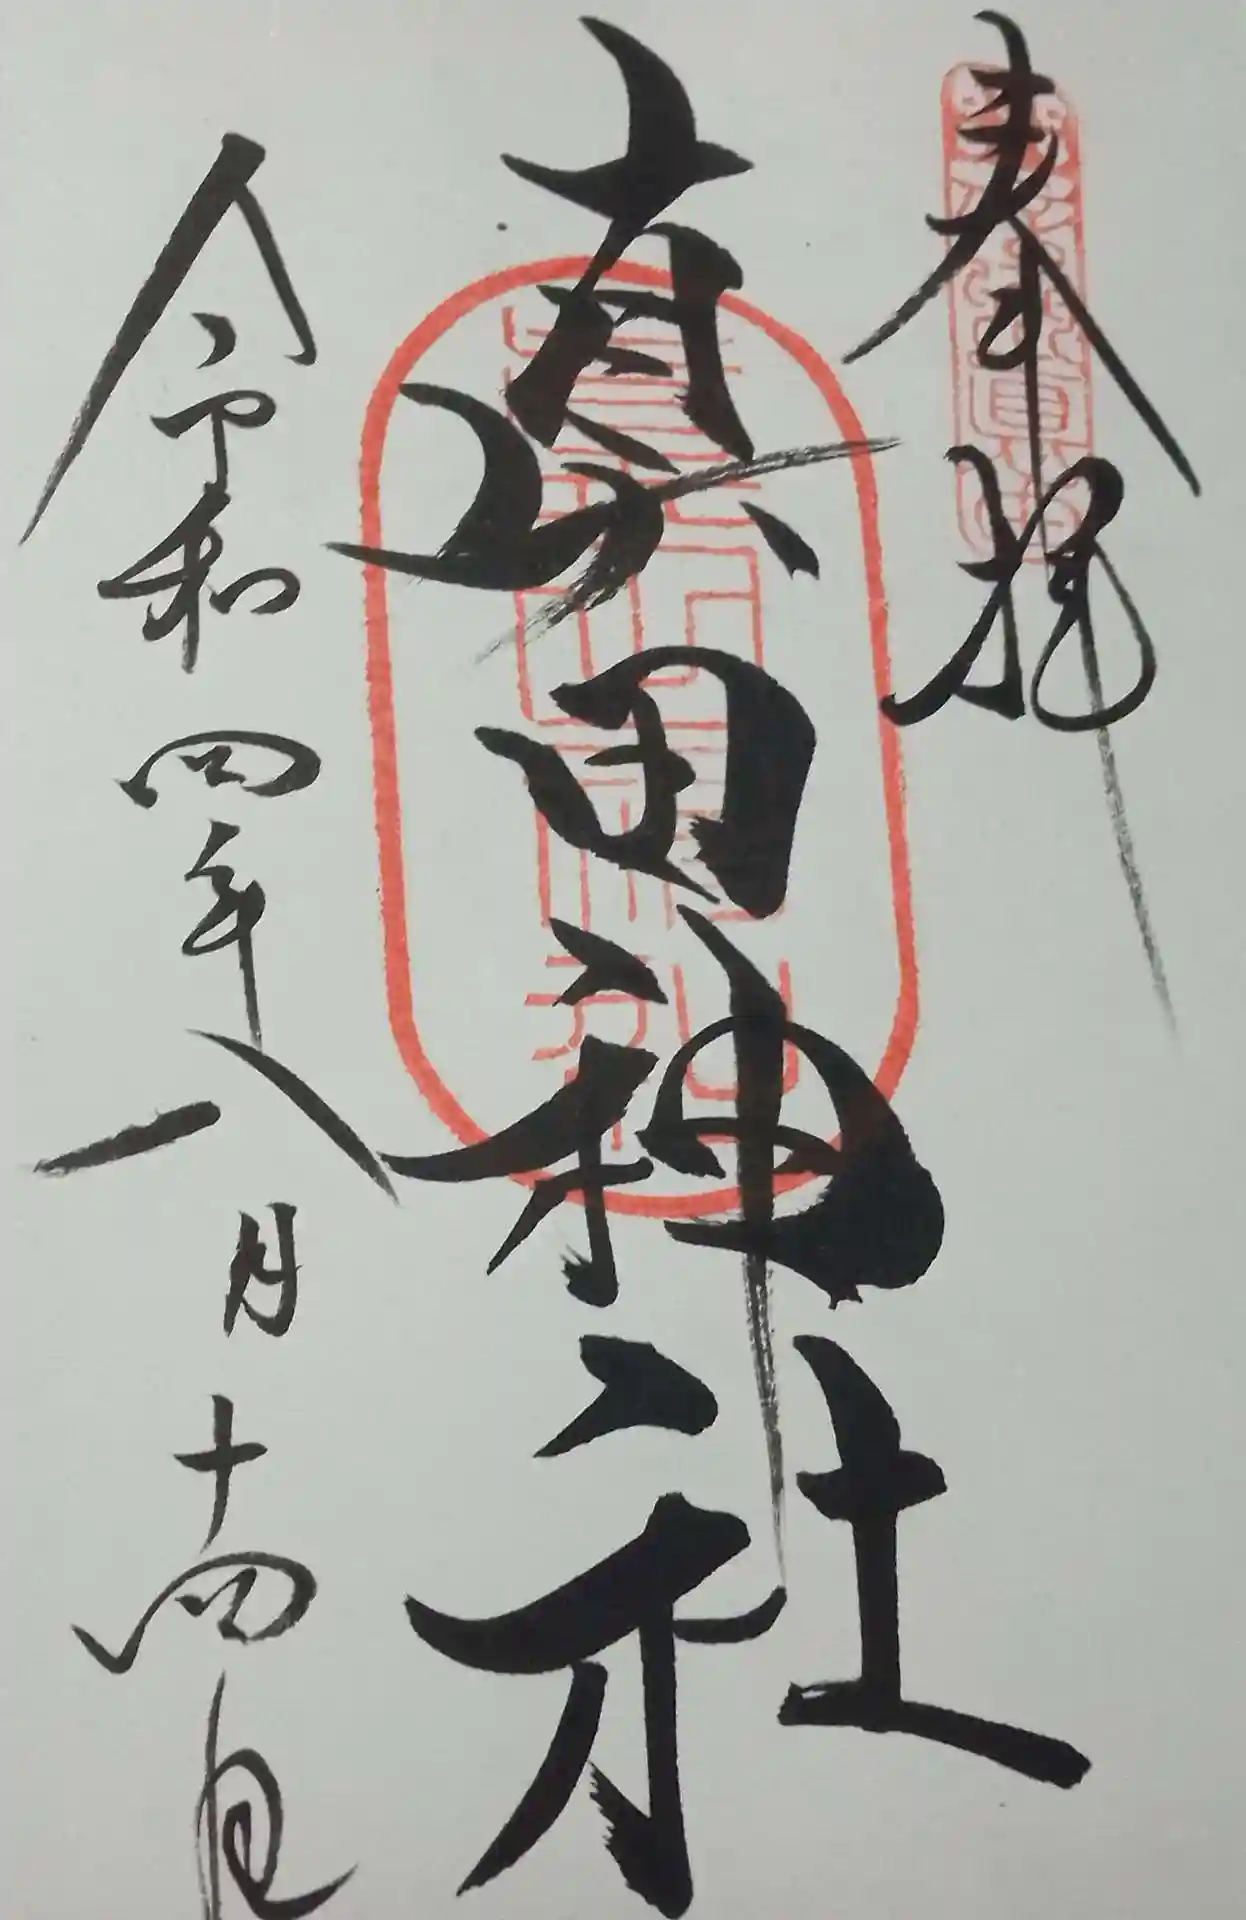 奉拝
真田神社
令和四年八月十四日